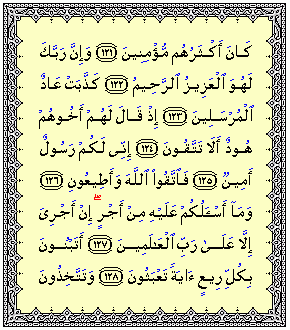 كَانَ أَكْثَرُهُم مُّؤْمِنِينَ ﴿١٢١﴾ وَإِنَّ رَبَّكَ
لَهُوَ ٱلْعَزِيزُ ٱلرَّحِيمُ ﴿١٢٢﴾ كَذَّبَتْ عَادٌ
ٱلْمُرْسَلِينَ ﴿١٢٣﴾ إِذْ قَالَ لَهُمْ أَخُوهُمْ
هُودٌ أَلَا تَتَّقُونَ ﴿١٢٤﴾ إِنِّى لَكُمْ رَسُولٌ
أَمِينٌ ﴿١٢٥﴾ فَٱتَّقُوا۟ ٱللَّهَ وَأَطِيعُونِ ﴿١٢٦﴾
وَمَآ أَسْـَٔلُكُمْ عَلَيْهِ مِنْ أَجْرٍ ۖ إِنْ أَجْرِىَ
إِلَّا عَلَىٰ رَبِّ ٱلْعَـٰلَمِينَ ﴿١٢٧﴾ أَتَبْنُونَ
بِكُلِّ رِيعٍ ءَايَةً تَعْبَثُونَ ﴿١٢٨﴾ وَتَتَّخِذُونَ